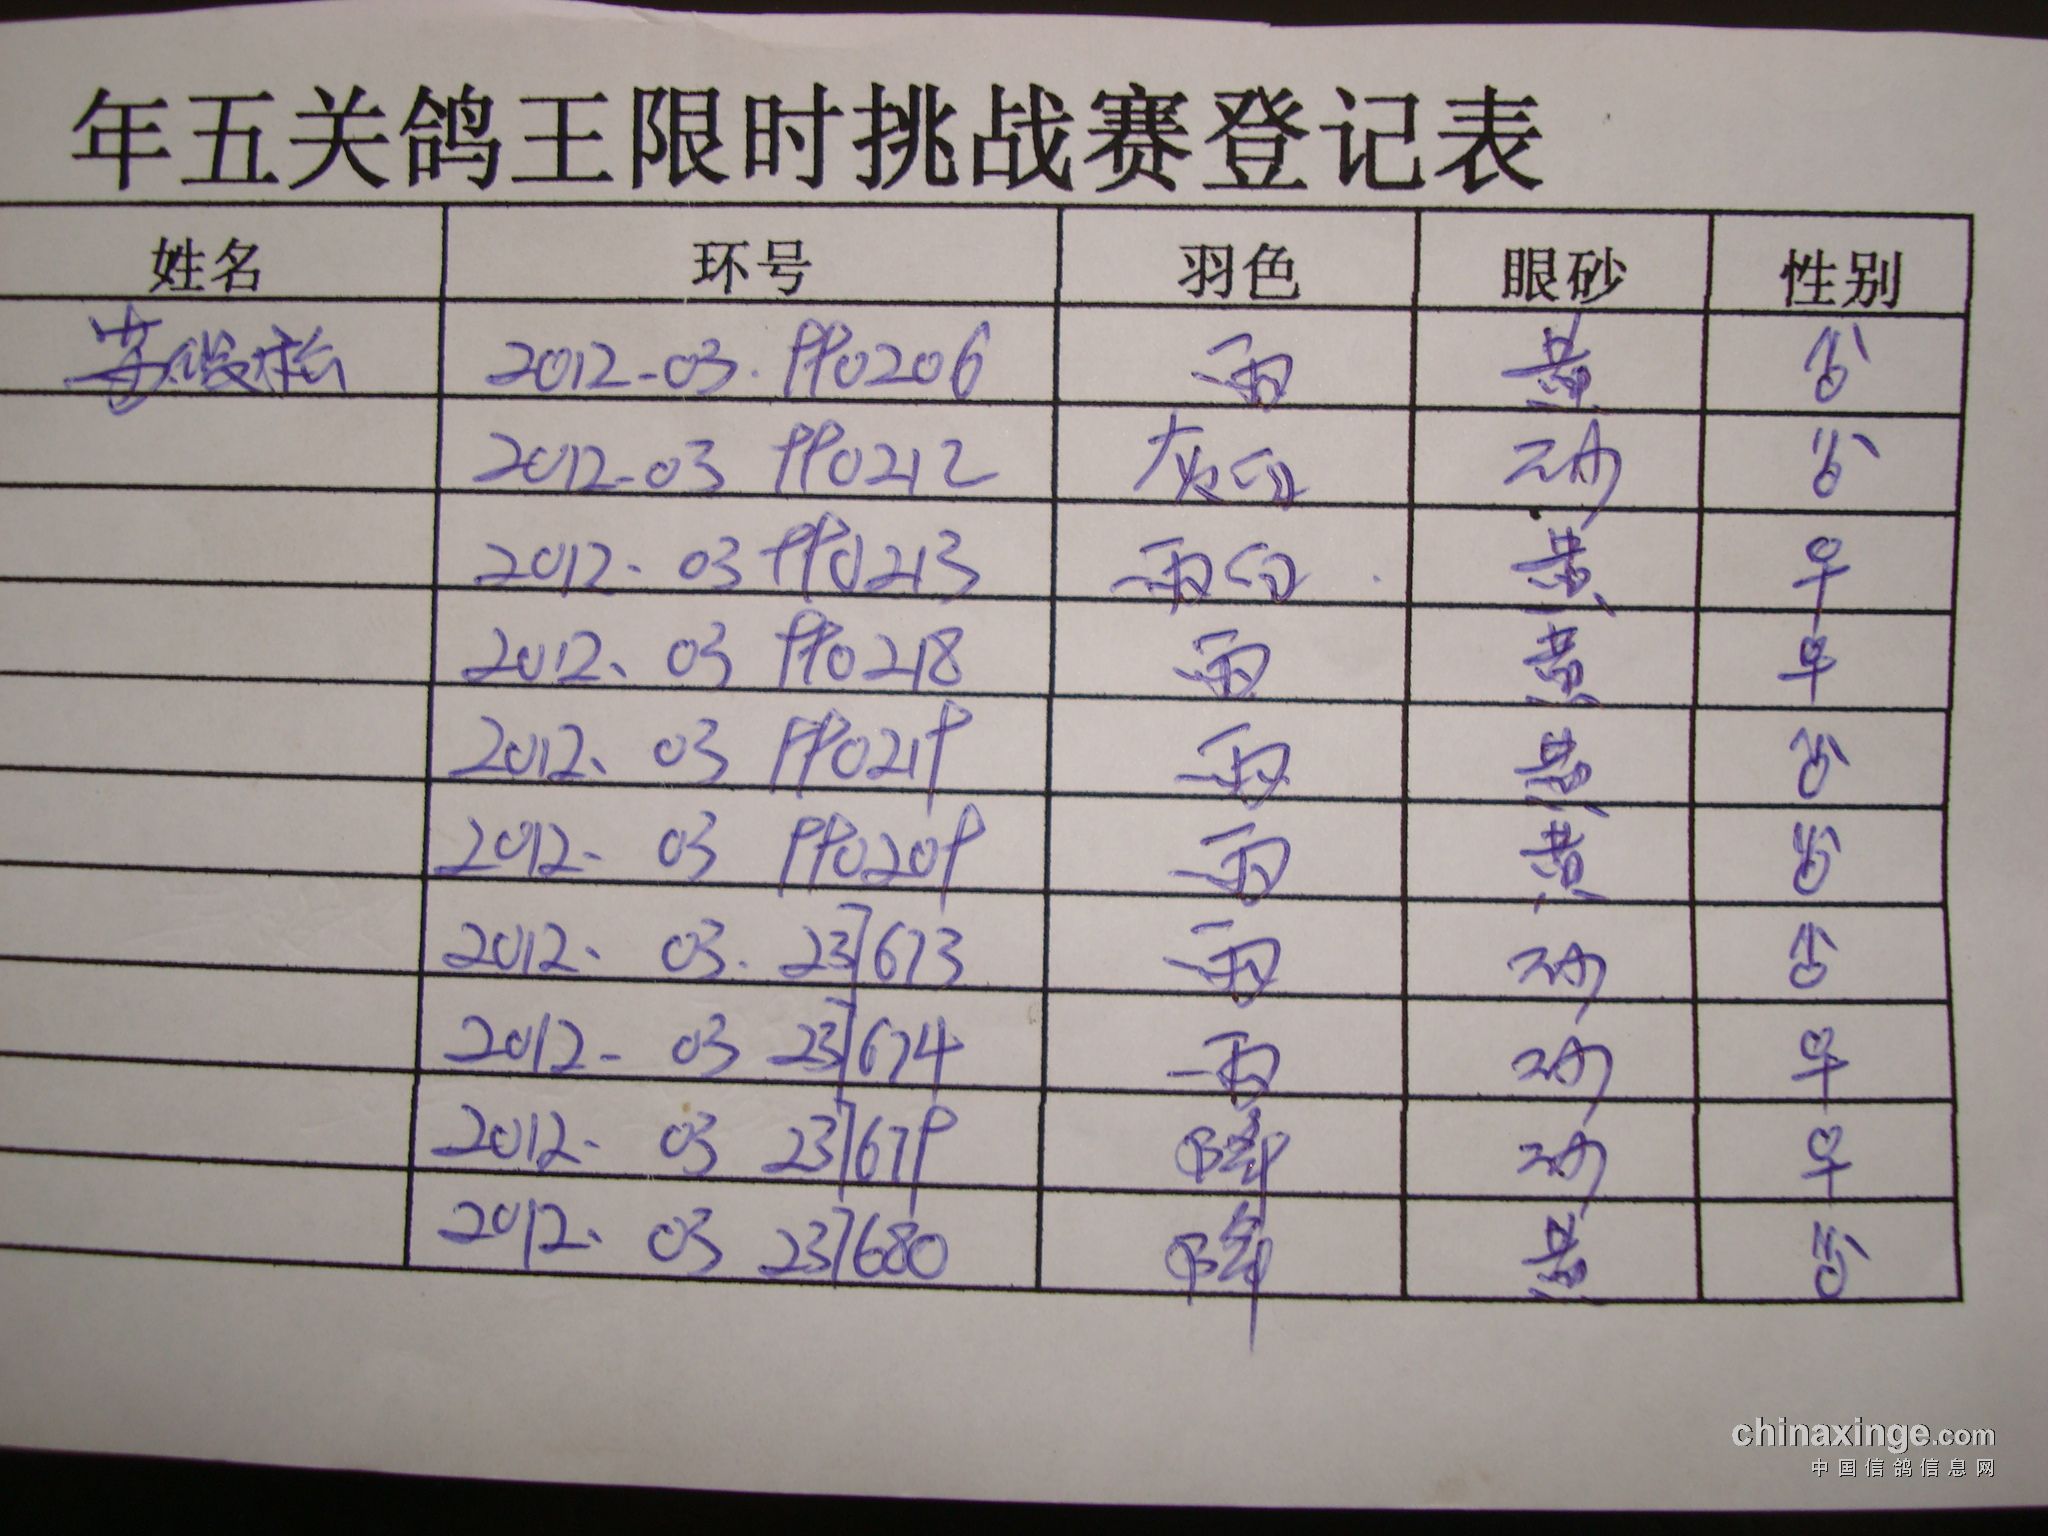 年五关鸽王限时挑战赛登记表
姓名 环号 羽色 眼砂 性别
2012-03.990206 雨 黄 ♂
2012-03 990212 灰白 砂 ♂
2012-03 990213 雨白 黄 ♀
2012、03 990218 雨 黄 ♀
2012、03 990219 雨 黄 ♂
2012-03 990209 雨 黄 ♂
2012-03.237673 雨 砂 ♂
2012-03 237674 雨 砂 ♀
2012-03 237679 降 砂 ♀
2012、03 237680 降 黄 ♂
chinaxinge.com
中国信鸽信息网